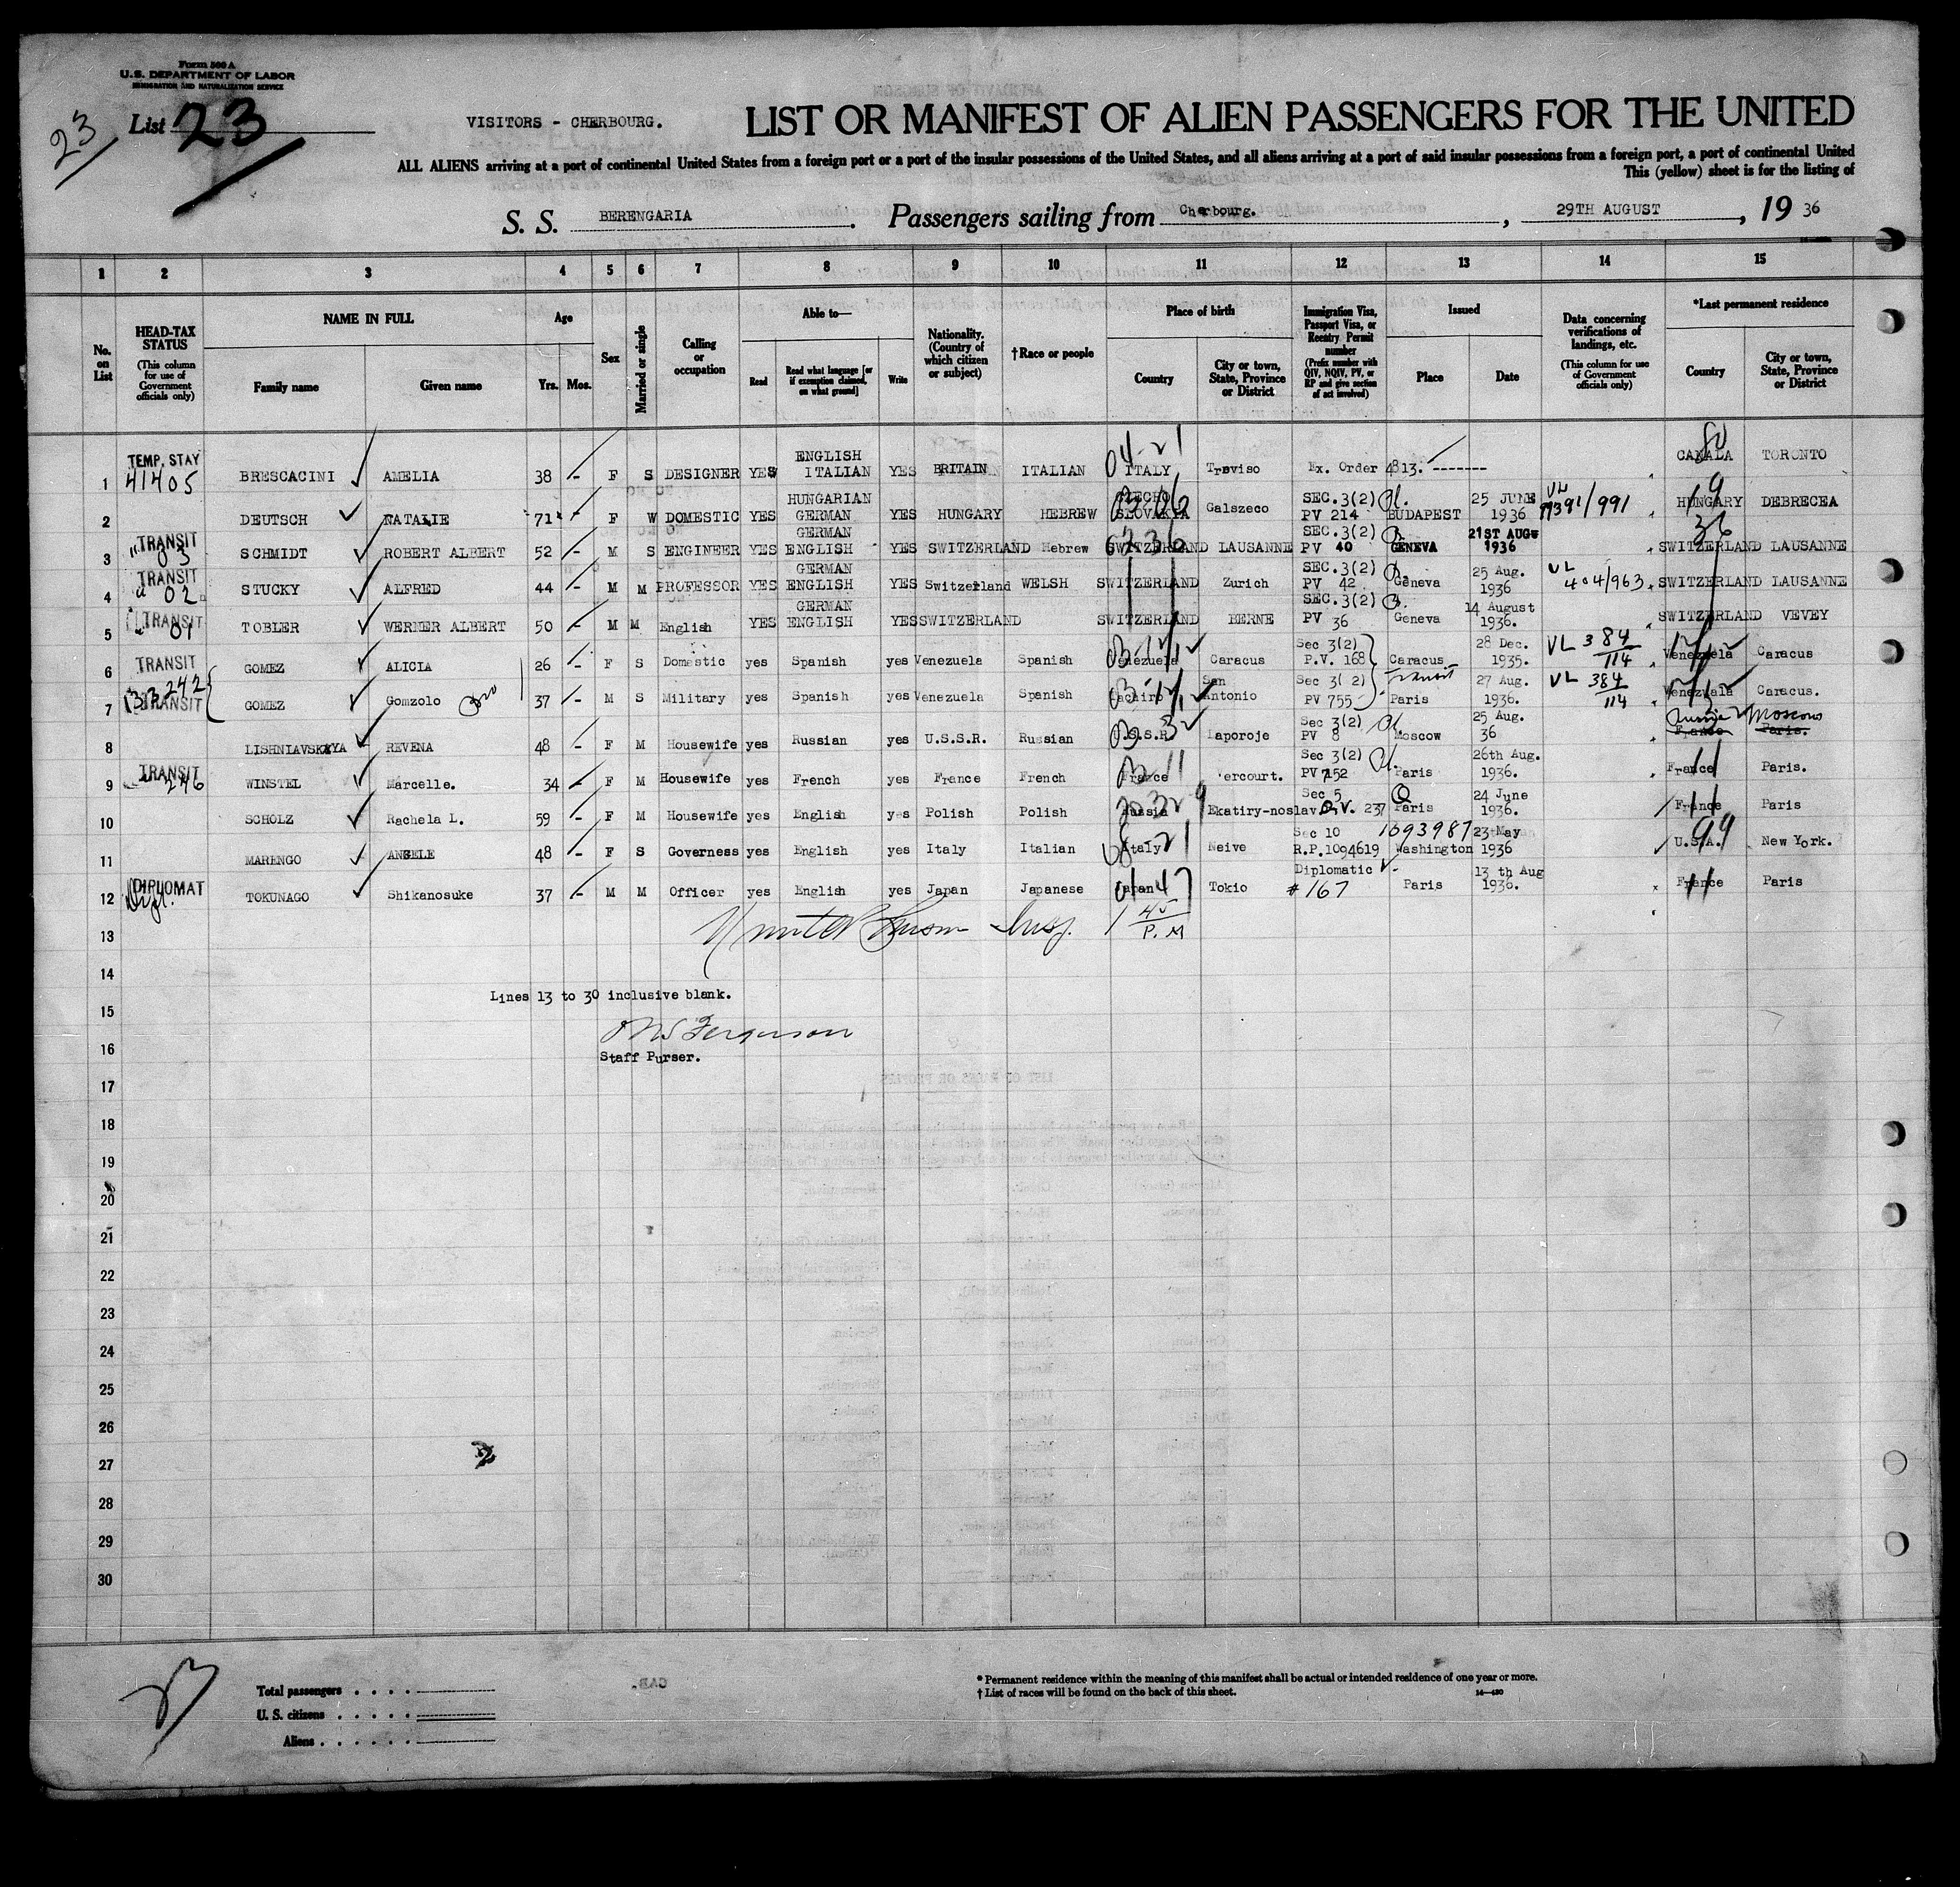 Form 500 A
U.S. DEPARTMENT OF LABOR
IMMIGRATION AND NATURALIZATION SERVICE
23
List 23
VISITORS - CHERBOURG.
LIST OR MANIFEST OF ALIEN PASSENGERS FOR THE UNITED
ALL ALIENS arriving at a port of continental United States from a foreign port or a port of the insular possessions of the United States, and all aliens arriving at a port of said insular possessions from a foreign port, a port of continental United
This (yellow) sheet is for the listing of
S. S. BERENGARIA. Passengers sailing from Cherbourg., 29TH AUGUST, 19 36
1 2 3 4 5 6 7 8 9 10 11 12 13 14 15
No. on List
HEAD-TAX STATUS (This column for use of Government officials only)
NAME IN FULL
Family name Given name
Age
Yrs. Mos.
Sex
Married or single
Calling or occupation
Able to—
Read Read what language [or if exemption claimed, on what ground] Write
Nationality. (Country of which citizen or subject)
†Race or people
Place of birth
Country City or town, State, Province or District
Immigration Visa, Passport Visa, or Reentry Permit number (Prefix number with QIV, NQIV, PV, or RP and give section of act involved)
Issued
Place Date
Data concerning verifications of landings, etc. (This column for use of Government officials only)
*Last permanent residence
Country City or town, State, Province or District
1 TEMP. STAY 41405 BRESCACINI AMELIA 38 - F S DESIGNER YES ENGLISH ITALIAN YES BRITAIN ITALIAN ITALY Treviso Ex. Order 4813. ------- CANALA TORONTO
2 DEUTSCH NATALIE 71 - F W DOMESTIC YES HUNGARIAN GERMAN YES HUNGARY HEBREW SLOVAKIA Galszeco SEC. 3(2) PV 214 BUDAPEST 25 JUNE 1936 HUNGARY DEBRECEA
3 TRANSIT " 03 SCHMIDT ROBERT ALBERT 52 - M S ENGINEER YES GERMAN ENGLISH YES SWITZERLAND Hebrew SWITZERLAND LAUSANNE SEC. 3(2) PV 40 GENEVA 21ST AUG 1936 SWITZERLAND LAUSANNE
4 TRANSIT " 02 STUCKY ALFRED 44 - M M PROFESSOR YES GERMAN ENGLISH YES Switzerland WELSH SWITZERLAND Zurich SEC. 3(2) PV 42 Geneva 25 Aug. 1936 VL 404/963 SWITZERLAND LAUSANNE
5 TRANSIT " 01 TOBLER WERNER ALBERT 50 - M M English YES GERMAN ENGLISH YES SWITZERLAND SWITZERLAND BERNE SEC. 3(2) PV 36 Geneva 14 August 1936. SWITZERLAND VEVEY
6 TRANSIT GOMEZ ALICIA 26 - F S Domestic yes Spanish yes Venezuela Spanish Venezuela Caracus Sec 3(2) P.V. 168 Caracus 28 Dec. 1935. VL 384/114 Venezuela Caracus
7 33242 TRANSIT GOMEZ Gomzolo 37 - M S Military yes Spanish yes Venezuela Spanish Tachiro San Antonio Sec 3(2) PV 755 Transit Paris 27 Aug. 1936. VL 384/114 Venezuala Caracus.
8 LISHNIAVSKAYA REVENA 48 - F M Housewife yes Russian yes U.S.S.R. Russian U.S.S.R. Laporoje Sec 3(2) PV 8 Moscow 25 Aug. 36 Russie Moscow France Paris.
9 TRANSIT " 246 WINSTEL Marcelle. 34 - F M Housewife yes French yes France French France Vercourt. Sec 3(2) PV 7152 Paris 26th Aug. 1936. France Paris.
10 SCHOLZ Rachela L. 59 - F M Housewife yes English yes Polish Polish Russia Ekatiry-noslav Sec 5 Q.V. 237 Paris 24 June 1936. France Paris
11 MARENGO ANGELE 48 - F S Governess yes English yes Italy Italian Italy Neive Sec 10 R.P.1094619 1093987 Washington 23 May 1936 U.S.A. New York.
12 DIPLOMAT Dipl. TOKUNAGO Shikanosuke 37 - M M Officer yes English yes Japan Japanese Japan Tokio Diplomatic #167 Paris 13 th Aug 1936. France Paris
13 1 45/P.M
14
Lines 13 to 30 inclusive blank.
15
Ferguson
16 Staff Purser.
17
18
19
20
21
22
23
24
25
26
27
28
29
30
Total passengers
U. S. citizens
Aliens
* Permanent residence within the meaning of this manifest shall be actual or intended residence of one year or more.
† List of races will be found on the back of this sheet.
14—430